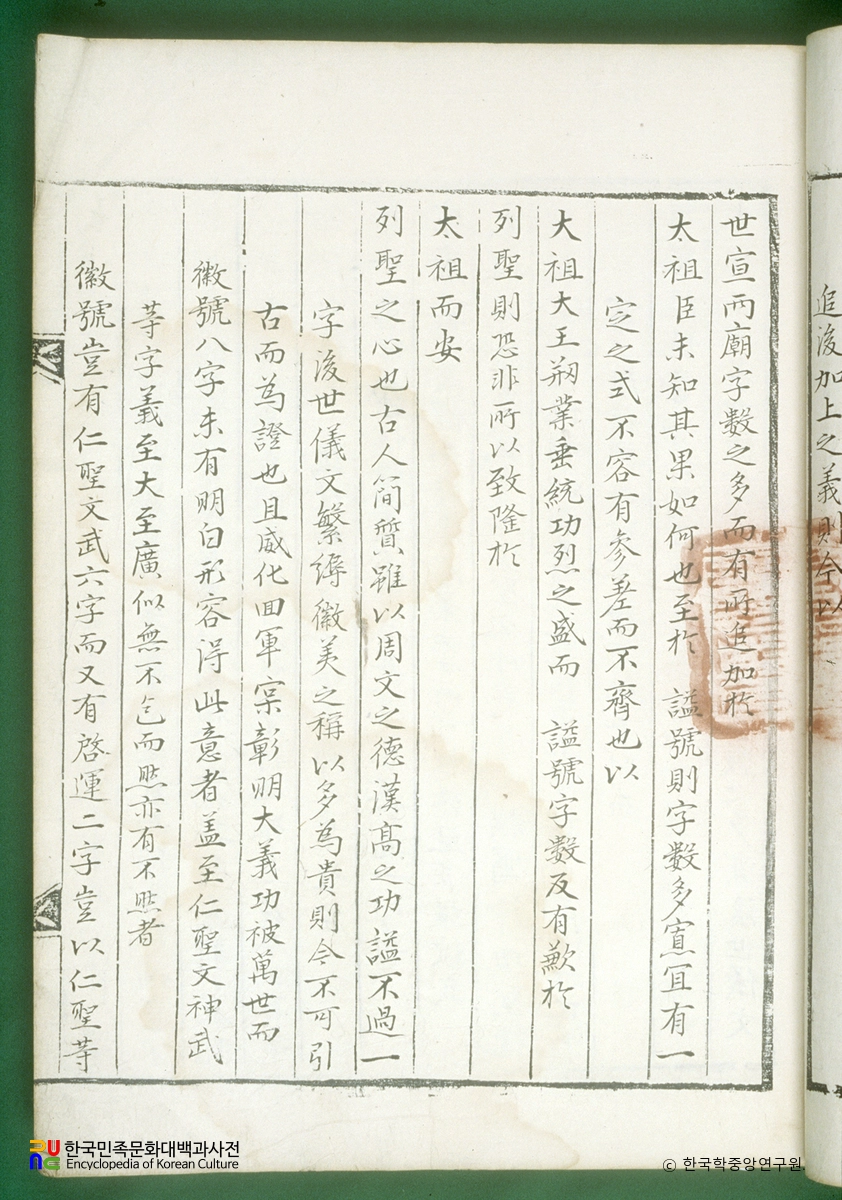 追後加上之義則今以
世宣兩廟字數之多而有所追加於
太祖臣未知其果如何也至於 謚號則字數多寡宜有一
定之式不容有參差而不齊也以
太祖大王刱業垂統功烈之盛而 謚號字數反有歉於
列聖則恐非所以致隆於
太祖而安
列聖之心也古人簡質雖以周文之德漢高之功謚不過一
字後世儀文繁縟徽美之稱以多為貴則今不可引
古而為證也且威化回軍寔彰明大義功被萬世而
徽號八字未有明白形容得此意者盖至仁聖文神武
等字義至大至廣似無不包而然亦有不然者
徽號豈有仁聖文武六字而又有啓運二字豈以仁聖等
한국민족문화대백과사전
Encyclopedia of Korean Culture
© 한국학중앙연구원